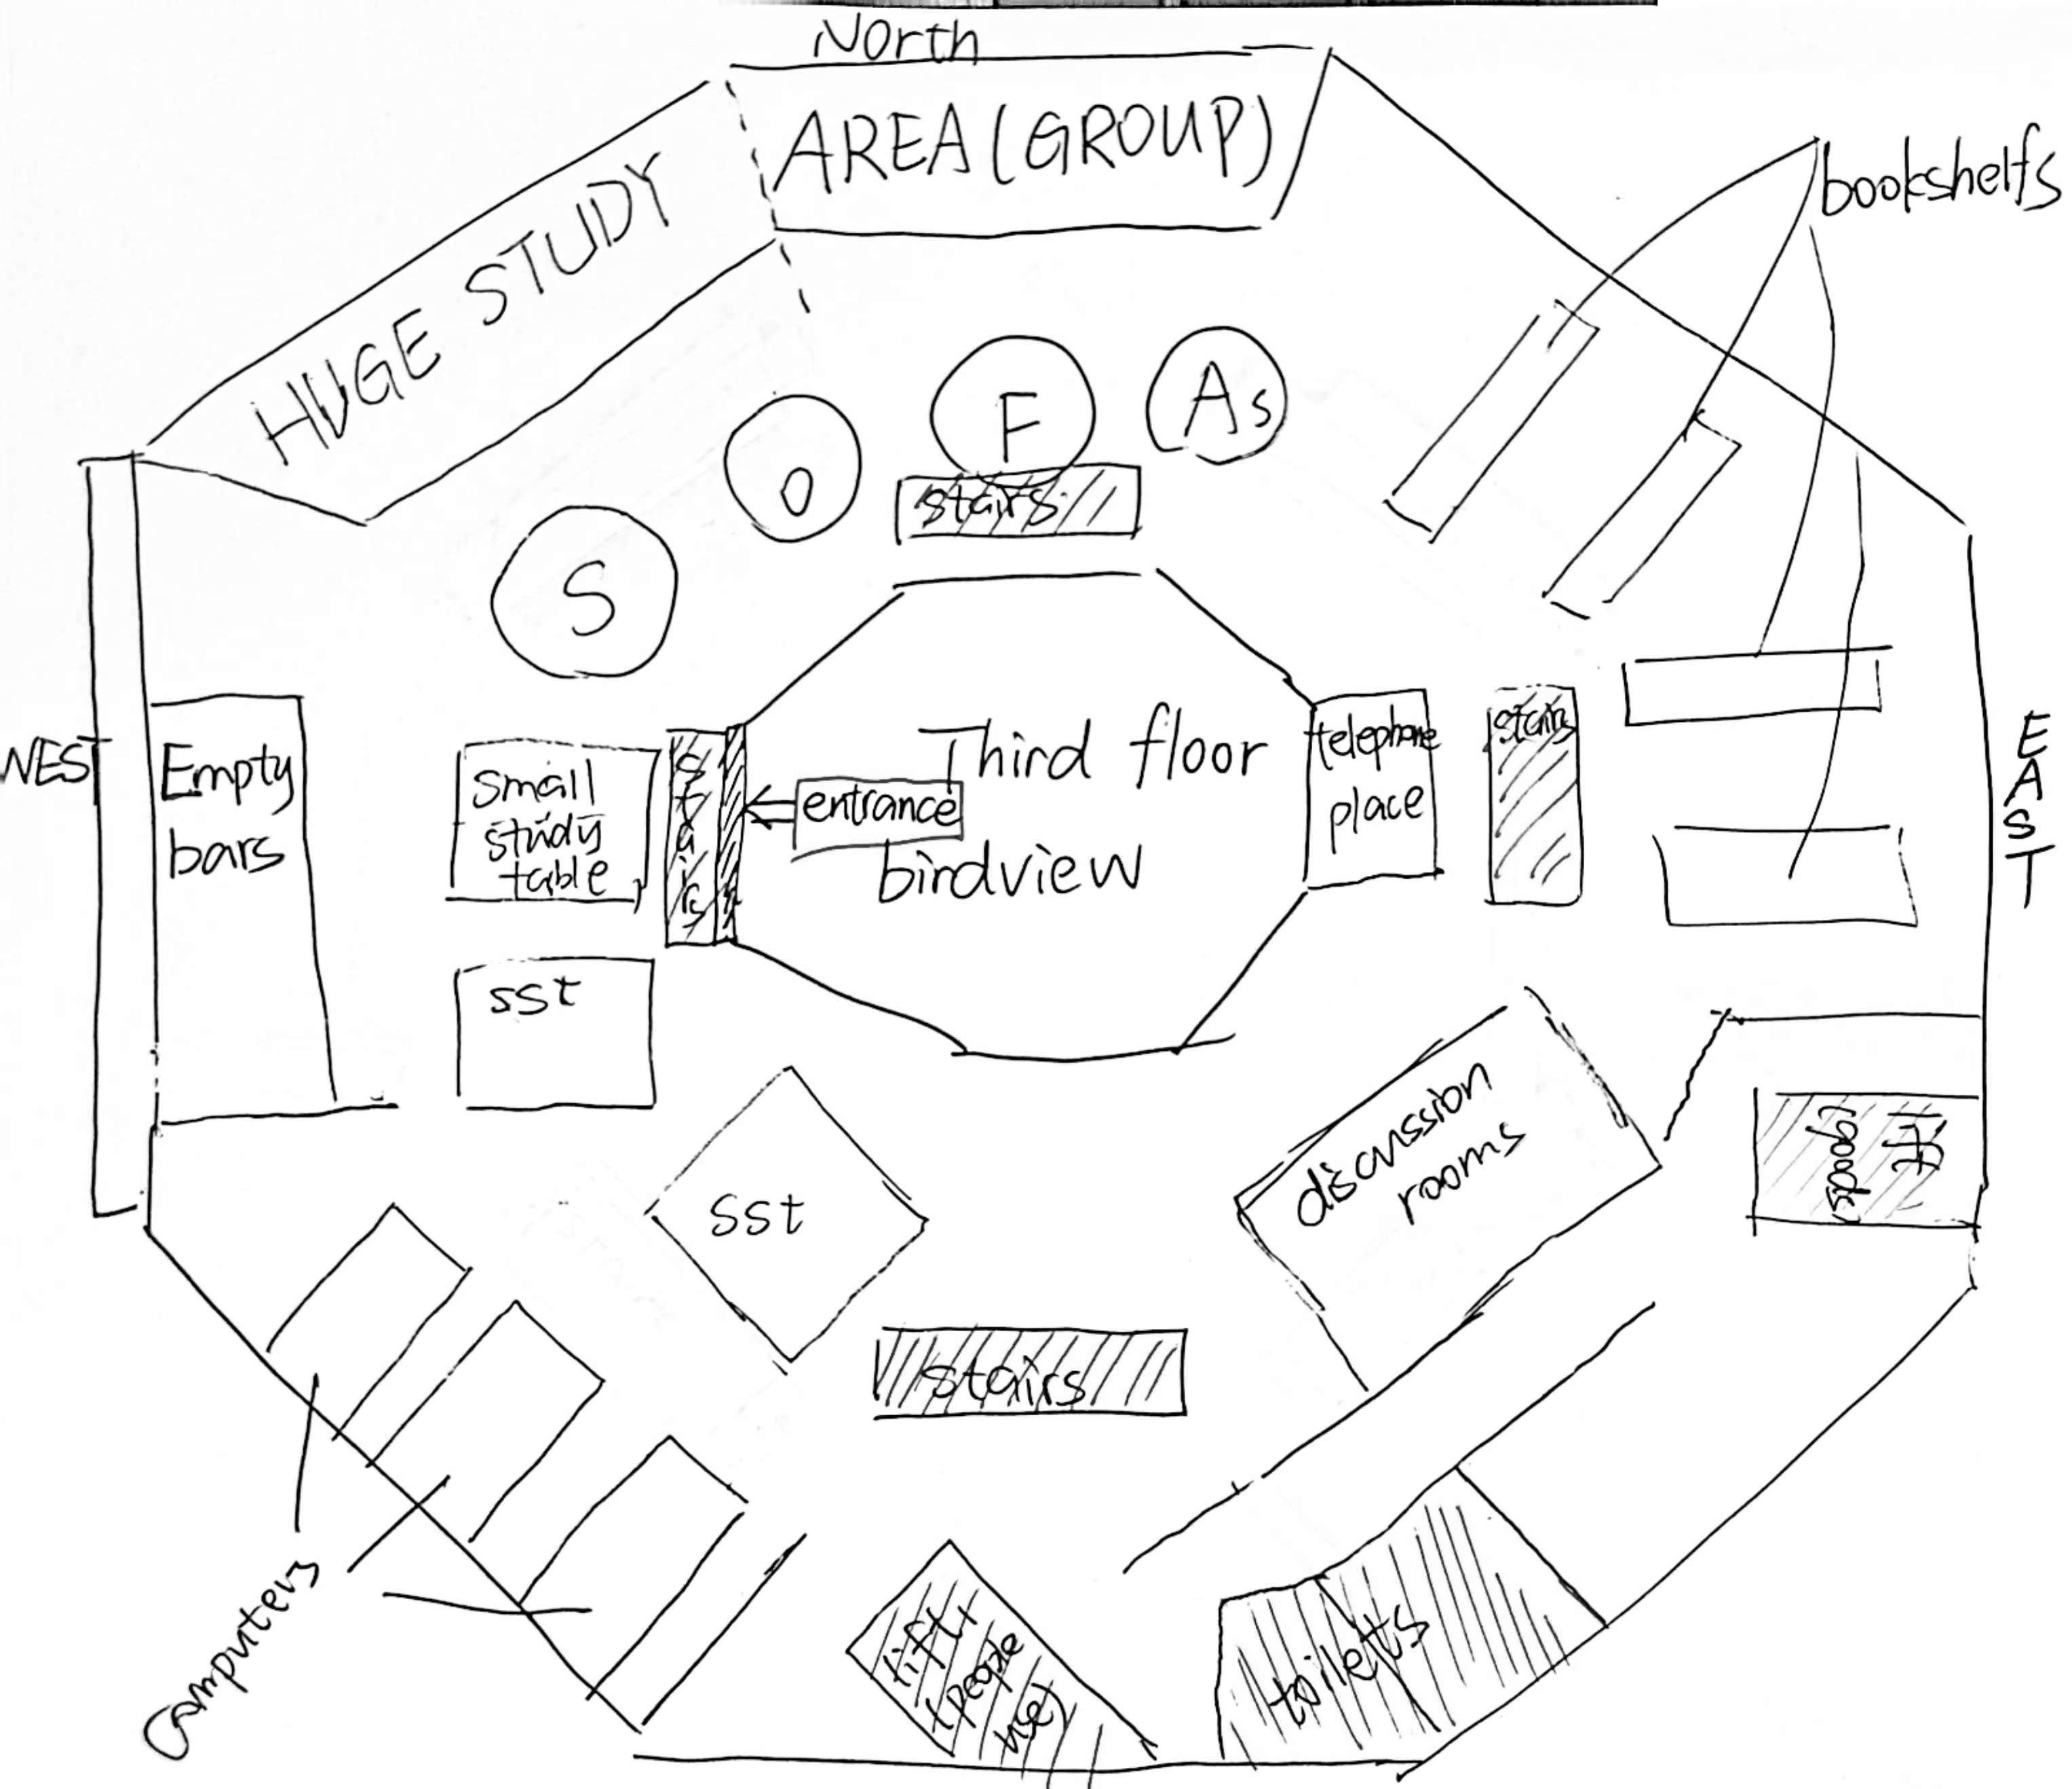 North
AREA (GROUP)
HUGE STUDY
bookshelfs
F
As
O
stairs
S
WEST
Empty
bars
small
study
table
stairs
Third floor
entrance
birdview
telephone
place
stairs
EAST
sst
sst
discussion
rooms
lift
(goods)
stairs
computers
lift
(people
use)
toiletts